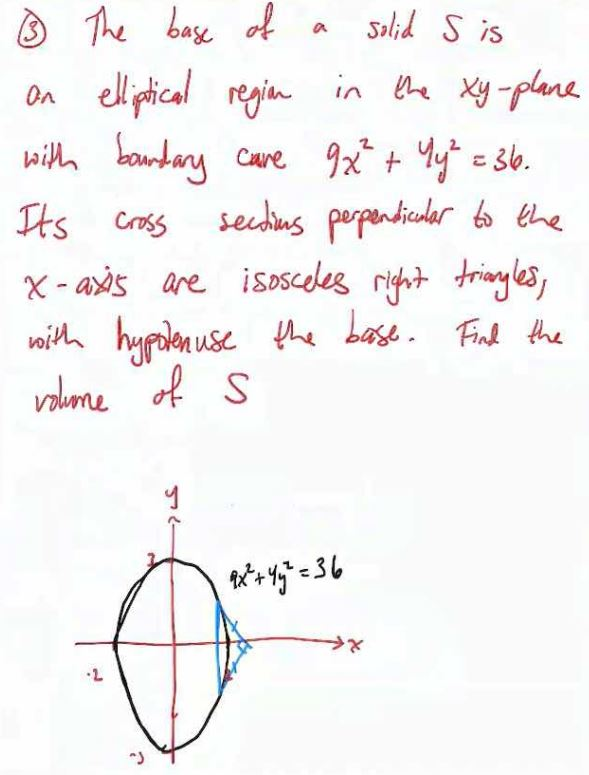 ③ The base of a solid S is
an elliptical region in the xy-plane
with boundary curve 9x² + 4y² = 36.
Its cross sections perpendicular to the
x-axis are isosceles right triangles,
with hypotenuse the base. Find the
volume of S
y
3
9x²+4y²=36
x
-2
2
-3